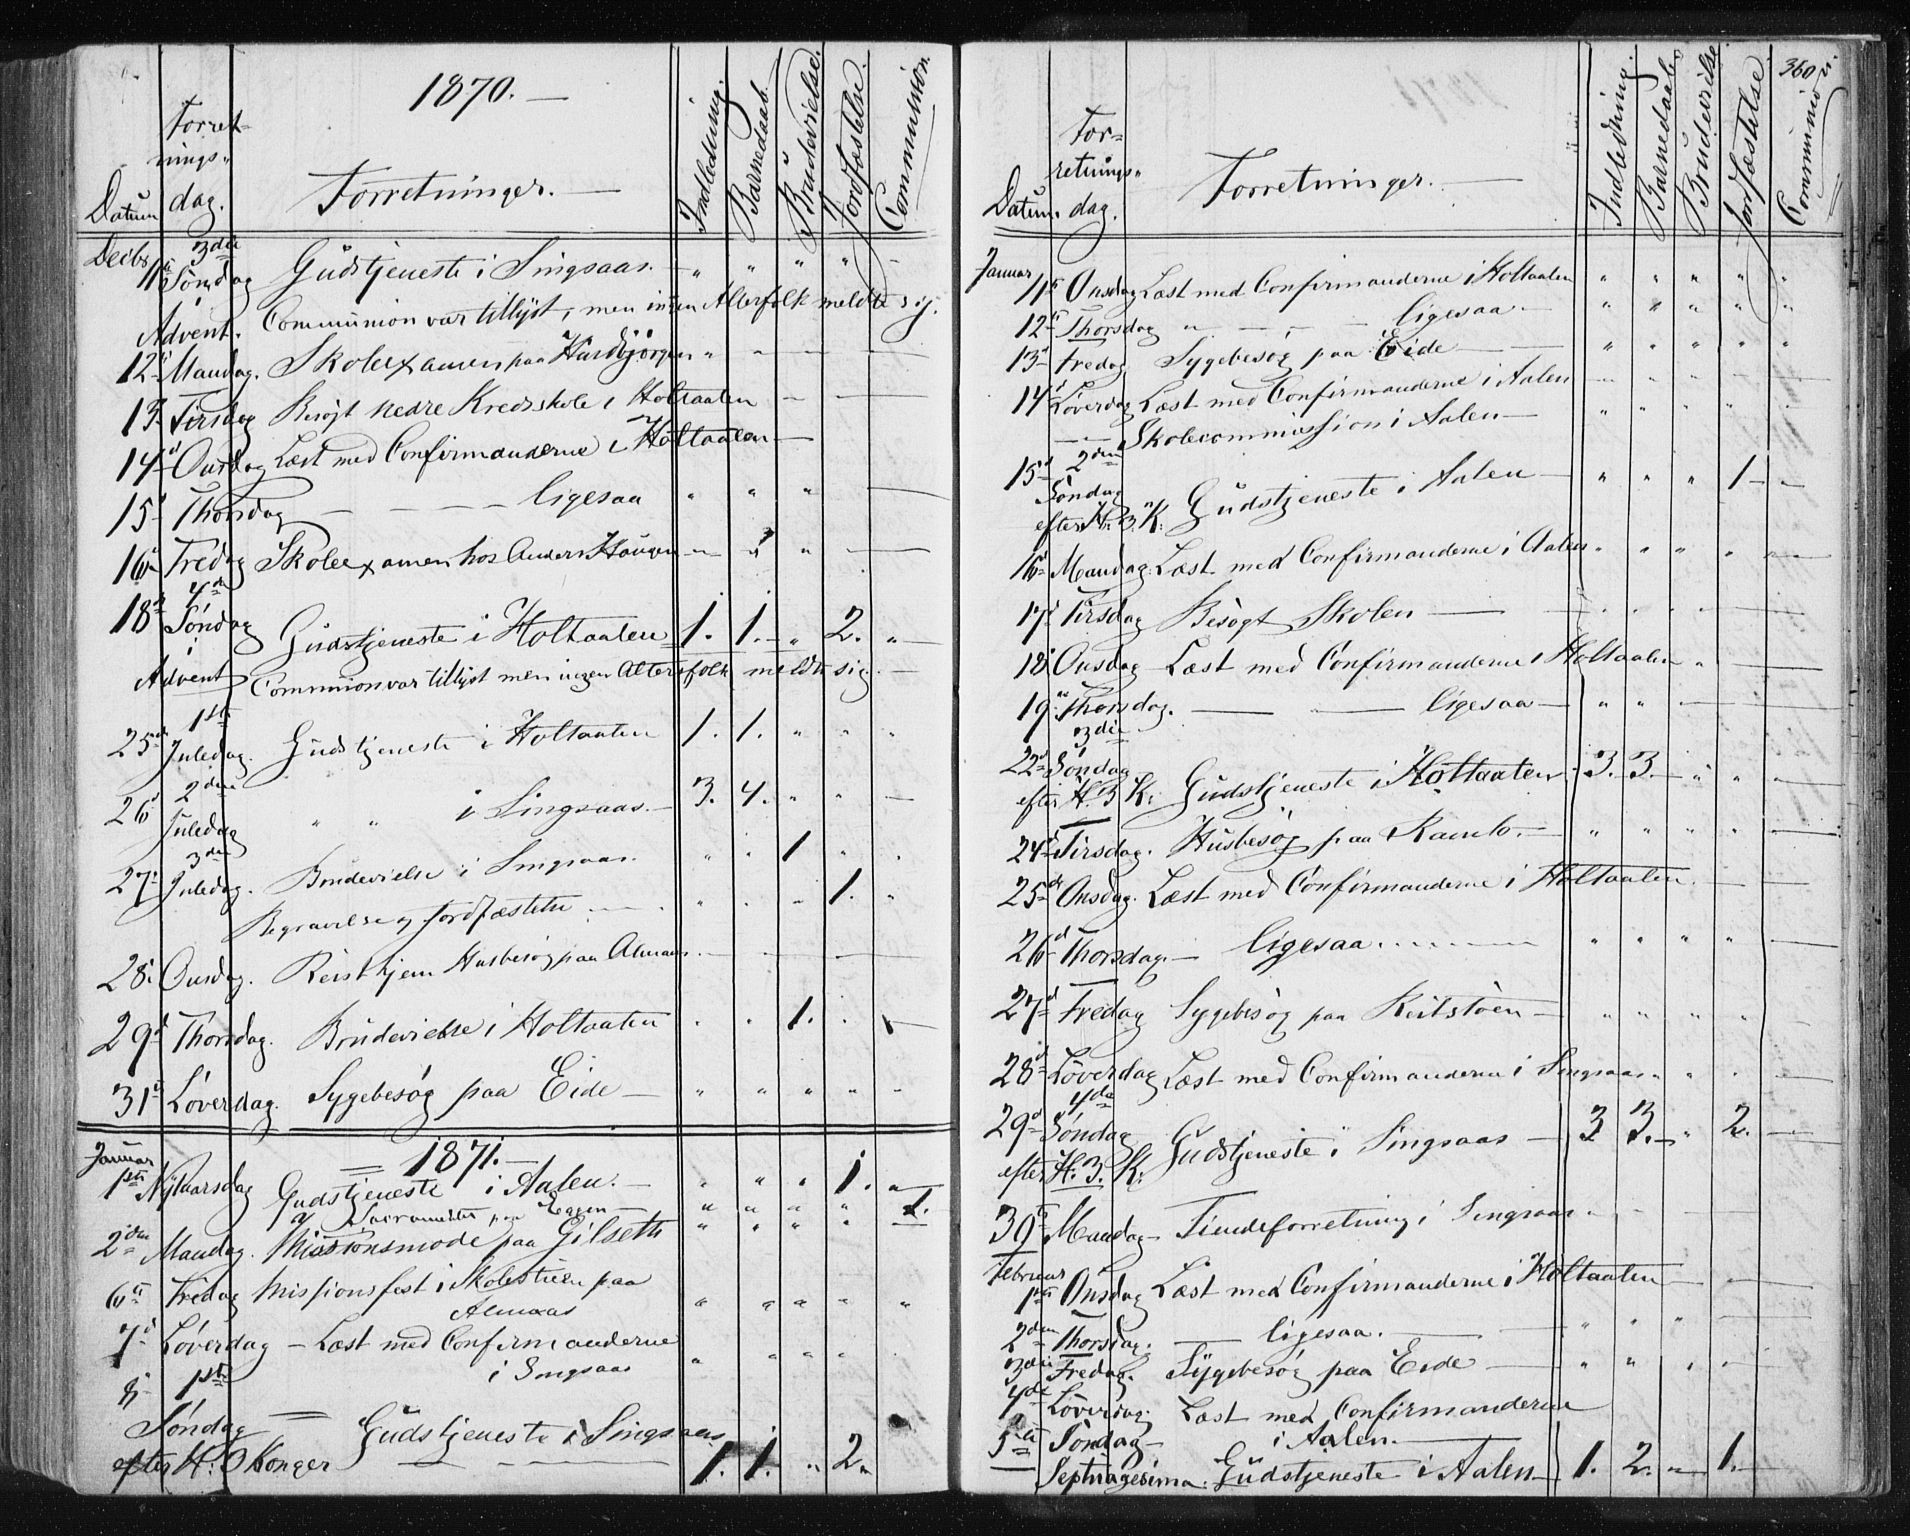 1870.
Forret-
nings-
Datum dag. Forretninger. Indledning. Barnedaab. Brudevielse. Jordfæstelse. Communion.
Decbr 3die
11te Søndag Gudstjeneste i Singsaas. " " " "
Advent. Communion var tillyst, men ingen Alterfolk meldte sig.
12te Mandag. Skoleexamen paa
13 Tirsdag Besøgt nedre Kredsskole i Holtaalen
14d Onsdag Læst med Confirmanderne i Holtaalen
15d Thorsdag — — — ligesaa " " "
16d Fredag Skoleexamen hos Anders Haugen
4de
18d Søndag Gudstjeneste i Holtaalen 1. 1. " 2. "
Advent Communion var tillyst men ingen Altersfolk meldte sig.
1ste
25d Juledag. Gudstjeneste i Holtaalen 1. 1. " " "
2den
26d Juledag " " i Singsaas. 3. 4. " "
3die
27d Juledag. Brudevielse i Singsaas. " " 1 " "
Begravelse og Jordfæstelse " " " 1. "
28d Onsdag. Reist hjem Husbesøg paa Almaas
29d Thorsdag. Brudevielse i Holtaalen " " 1. "
31te Løverdag. Sygebesøg paa Eide " " " " "
Januar 1871.
1ste Nytaarsdag Gudstjeneste i Aalen. " " " 1.
og Sacramentet paa Eggen " " " " 1.
2den Mandag. Missionsmøde paa Gilseth " " " "
6te Fredag Missionsfest i Skolestuen paa
Almaas " " " " "
7d Løverdag — Læst med Confirmanderne
i Singsaas " " " "
8d 1ste
Søndag Gudstjeneste i Singsaas
efter H. 3 Konger 1. 1. " 2.
360
For-
retnings-
Datum. dag. Forretninger. Indledning. Barnedaab Brudevielse Jordfæstelse Communion
Januar
11te Onsdag Læst med Confirmanderne i Holtaalen " " " " "
12te Thorsdag " — " — ligesaa " " " " "
13d Fredag Sygebesøg paa Eide " " " " "
14d Løverdag Læst med Confirmanderne i Aalen
— — Skolecommission i Aalen
15d 2den
Søndag Gudstjeneste i Aalen " " " 1
efter H. 3 K.
16d Mandag Læst med Confirmanderne i Aalen
17d Tirsdag Besøgt Skolen
18d Onsdag Læst med Confirmanderne i Holtaalen
19de Thorsdag. — — ligesaa
3die
22d Søndag Gudstjeneste i Holtaalen 3. 3. " "
efter H. 3 K.
24d Tirsdag. Husbesøg paa Ramlo. " " " "
25de Onsdag. Læst med Confirmanderne i Holtaalen
26d Thorsdag. — ligesaa " " " "
27d Fredag Sygebesøg paa " " " "
28d Løverdag Læst med Confirmanderne i Singsaas
4de
29d Søndag Gudstjeneste i Singsaas 3 3. " 2.
efter H. 3. K.
30te Mandag Tiendeforretning i Singsaas
Februar
1ste Onsdag Læst med Confirmanderne i Holtaalen
2den Thorsdag. — ligesaa.
3die Fredag. Sygebesøg paa Eide
4de Løverdag. Læst med Confirmanderne
i Aalen.
5te Søndag
Septuagesima. Gudstjeneste i Aalen 1. 2. 1.